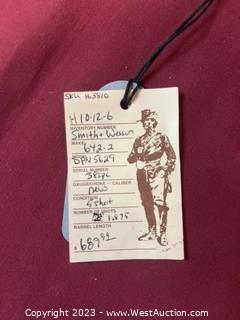 SKU 163810
H1012-6
INVENTORY NUMBER
Smith + Wesson
MAKE
642-2
DPN5629
SERIAL NUMBER
38spc
GAUGE/CHOKE - CALIBER
New
CONDITION
5 Shot
NUMBER OF SHOTS
1.875
BARREL LENGTH
$689.99
Copyright 2023 - WestAuction.com